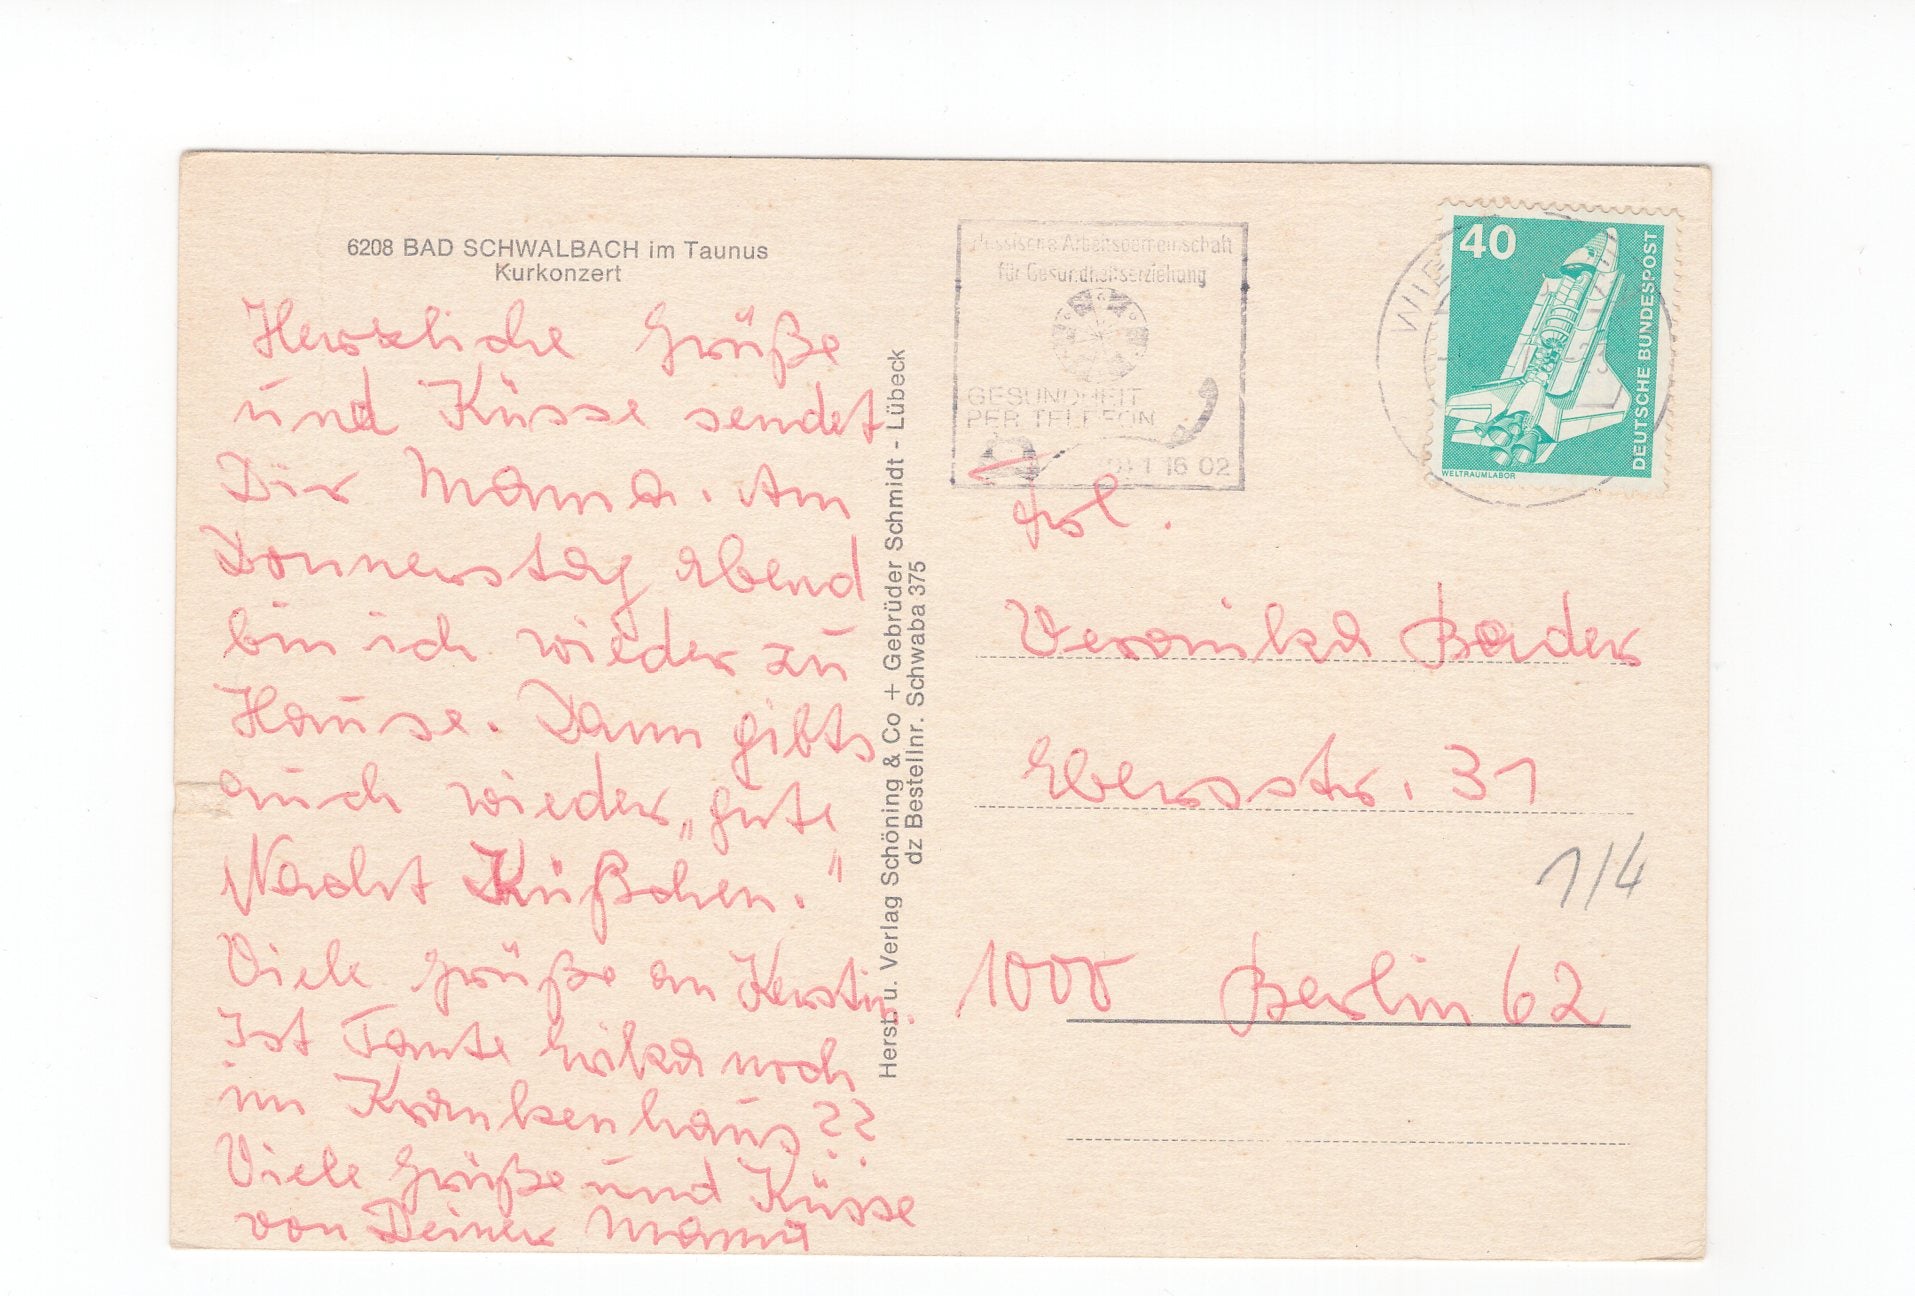 6208 BAD SCHWALBACH im Taunus
Kurkonzert
Herzliche Grüße
und Küsse sendet
Dir Mama. Am
Donnerstag abend
bin ich wieder zu
Hause. Dann gibts
auch wieder „gute
Nacht Küßchen."
Viele Grüße an Kerstin.
Ist Tante noch
im Krankenhaus??
Viele Grüße und Küsse
von Deiner Mama
Herst. u. Verlag Schöning & Co + Gebrüder Schmidt - Lübeck
dz Bestellnr. Schwaba 375
Hessische Arbeitsgemeinschaft
für Gesundheitserziehung
GESUNDHEIT
PER TELEFON
16 02
WIE
40
DEUTSCHE BUNDESPOST
WELTRAUMLABOR
Frl.
Veronika Bader
Ebersstr. 31
1/4
1000 Berlin 62